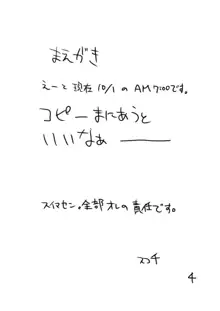 まえがき
えーと 現在 10/1 の AM 7:00です。
コピーまにあうと
いいなぁ ───
スイマセン。全部オレの責任です。
4